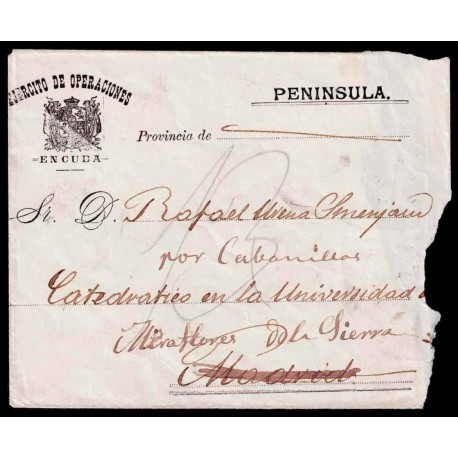 EJERCITO DE OPERACIONES
EN CUBA
PENINSULA.
Provincia de
Sr. D. Rafael Ureña Smenjaud
por Cabanillas
Catedratico en la Universidad
Miraflores de la Sierra
Madrid
13